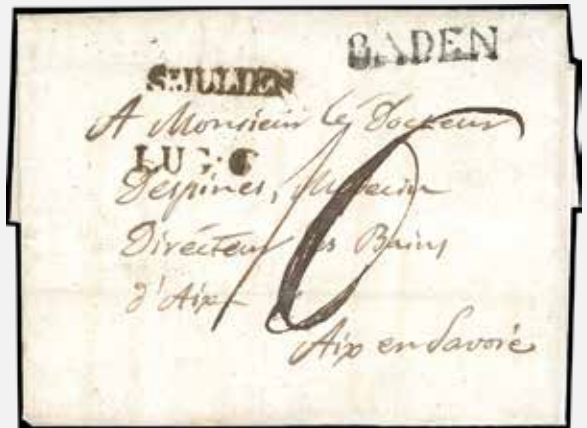 BADEN
A Monsieur le Docteur
Despines, Médecin
Directeur des Bains
d'Aix
Aix en Savoie